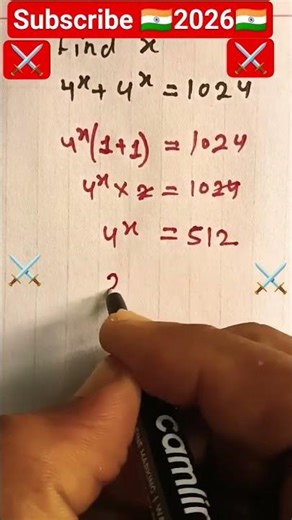 Subscribe 🇮🇳2026🇮🇳
Find x
4ˣ + 4ˣ = 1024
4ˣ(1+1) = 1024
4ˣ × 2 = 1024
4ˣ = 512
2
camlin